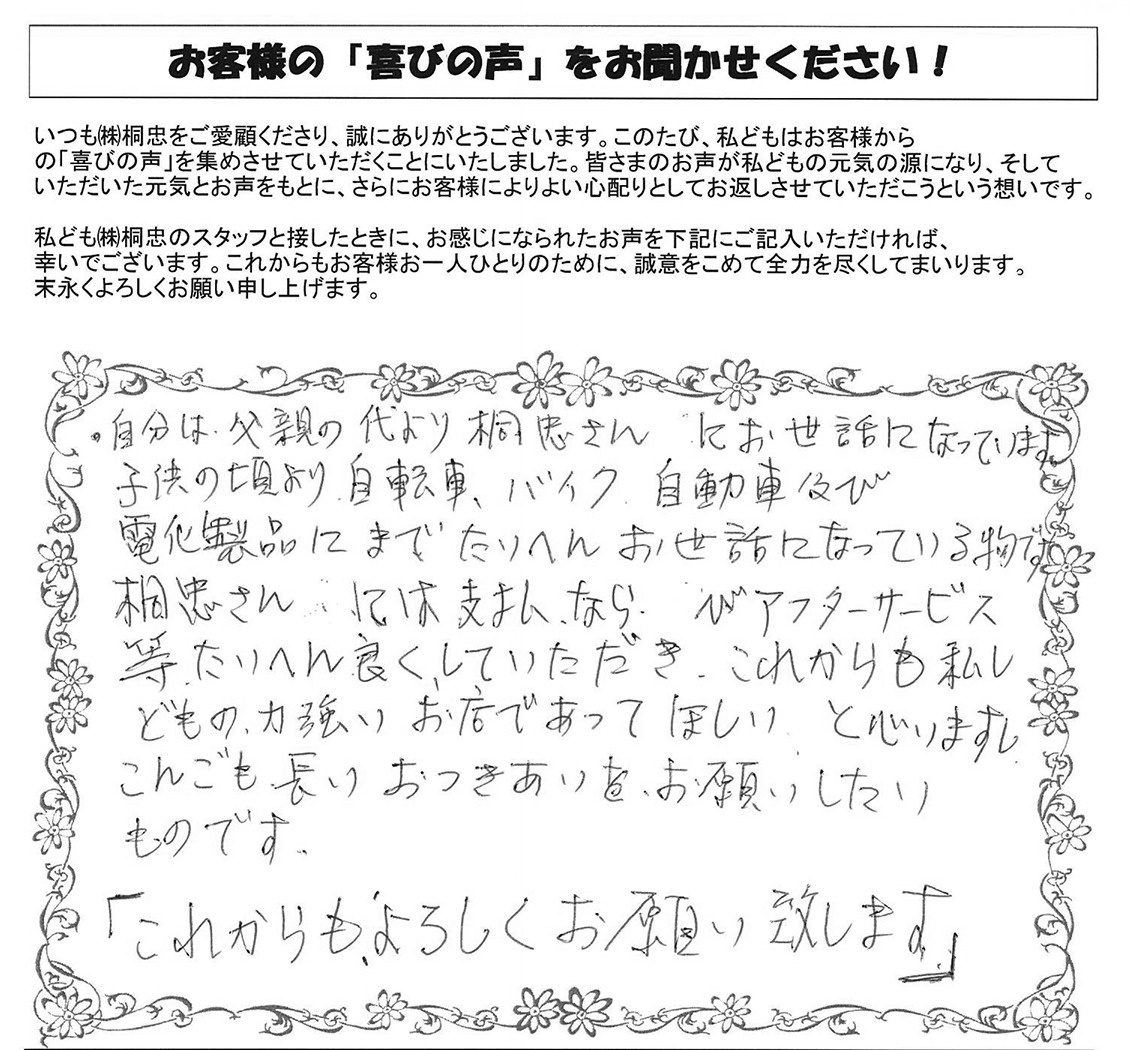 お客様の「喜びの声」をお聞かせください！
いつも㈱桐忠をご愛顧くださり、誠にありがとうございます。このたび、私どもはお客様から
の「喜びの声」を集めさせていただくことにいたしました。皆さまのお声が私どもの元気の源になり、そして
いただいた元気とお声をもとに、さらにお客様によりよい心配りとしてお返しさせていただこうという想いです。
私ども㈱桐忠のスタッフと接したときに、お感じになられたお声を下記にご記入いただければ、
幸いでございます。これからもお客様お一人ひとりのために、誠意をこめて全力を尽くしてまいります。
末永くよろしくお願い申し上げます。
・自分は、父親の代より桐忠さん にお世話になっています。
子供の頃より、自転車、バイク、自動車及び
電化製品にまでたいへんお世話になっている物です
桐忠さん には支払、なら びアフターサービス
等、たいへん良くしていただき、これからも私し
どもの、力強いお店であってほしい と思います。
こんごも長いおつきあいを、お願いしたい
ものです。
「これからも、よろしくお願い致します」